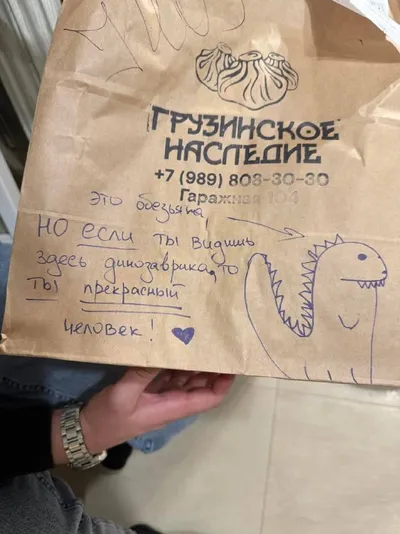 ГРУЗИНСКОЕ
НАСЛЕДИЕ
+7 (989) 808-30-30
Гаражная 104
это обезьяна
НО если ты видишь
здесь динозаврика, то
ты прекрасный
человек!